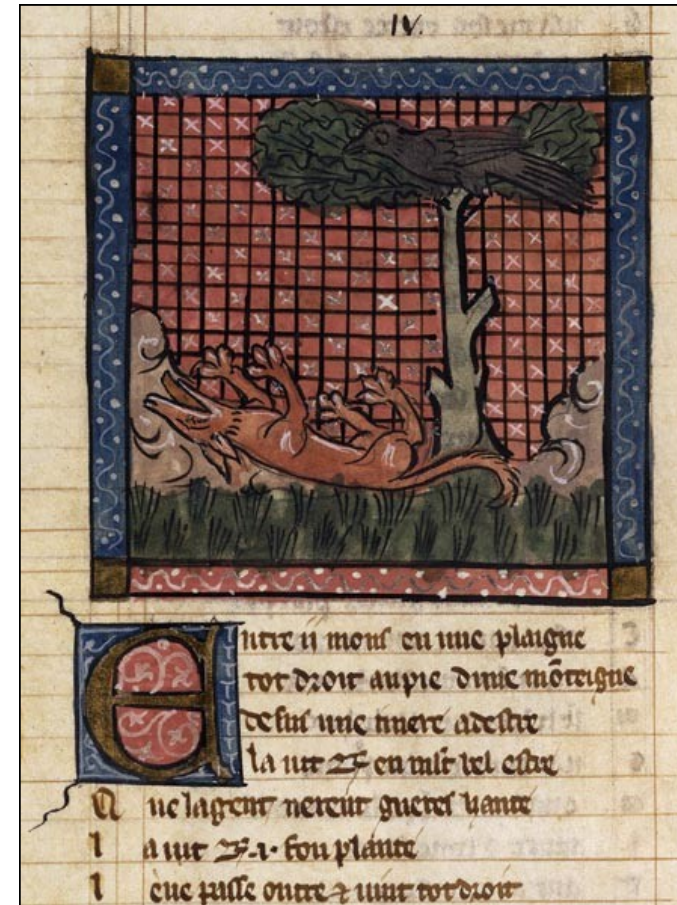 IV.
Entre ii mons en une plaigne
tot droit au pie dune mõteigne
desus une rivere a destre
la vit R en mlt bel estre
Q ue la gent nerent gueres hante
I a vit R .i. fou plante
I eue passe outre ⁊ vint tot droit